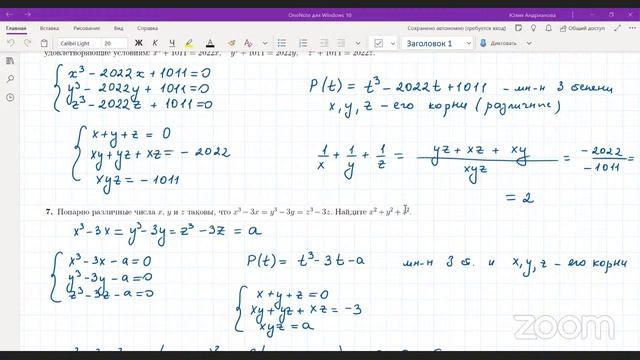 OneNote для Windows 10
Юлия Андрианова
Главная
Сохранено автономно (требуется вход)
Общий доступ
Calibri Light 20
Заголовок 1
удовлетворяющие условиям: x³ + 1011 = 2022x, y³ + 1011 = 2022y, z³ + 1011 = 2022z.
x³ - 2022x + 1011 = 0
y³ - 2022y + 1011 = 0
z³ - 2022z + 1011 = 0
P(t) = t³ - 2022t + 1011 - мн-н 3 степени
x, y, z - его корни (различные)
x + y + z = 0
xy + yz + xz = - 2022
xyz = - 1011
1/x + 1/y + 1/z = (yz + xz + xy)/xyz = -2022/-1011 =
= 2
7. Попарно различные числа x, y и z таковы, что x³ − 3x = y³ − 3y = z³ − 3z. Найдите x² + y² + z².
x³ - 3x = y³ - 3y = z³ - 3z = a
x³ - 3x - a = 0
y³ - 3y - a = 0
z³ - 3z - a = 0
P(t) = t³ - 3t - a
мн-н 3 ст. и x, y, z - его корни
x + y + z = 0
xy + yz + xz = -3
xyz = a
zoom